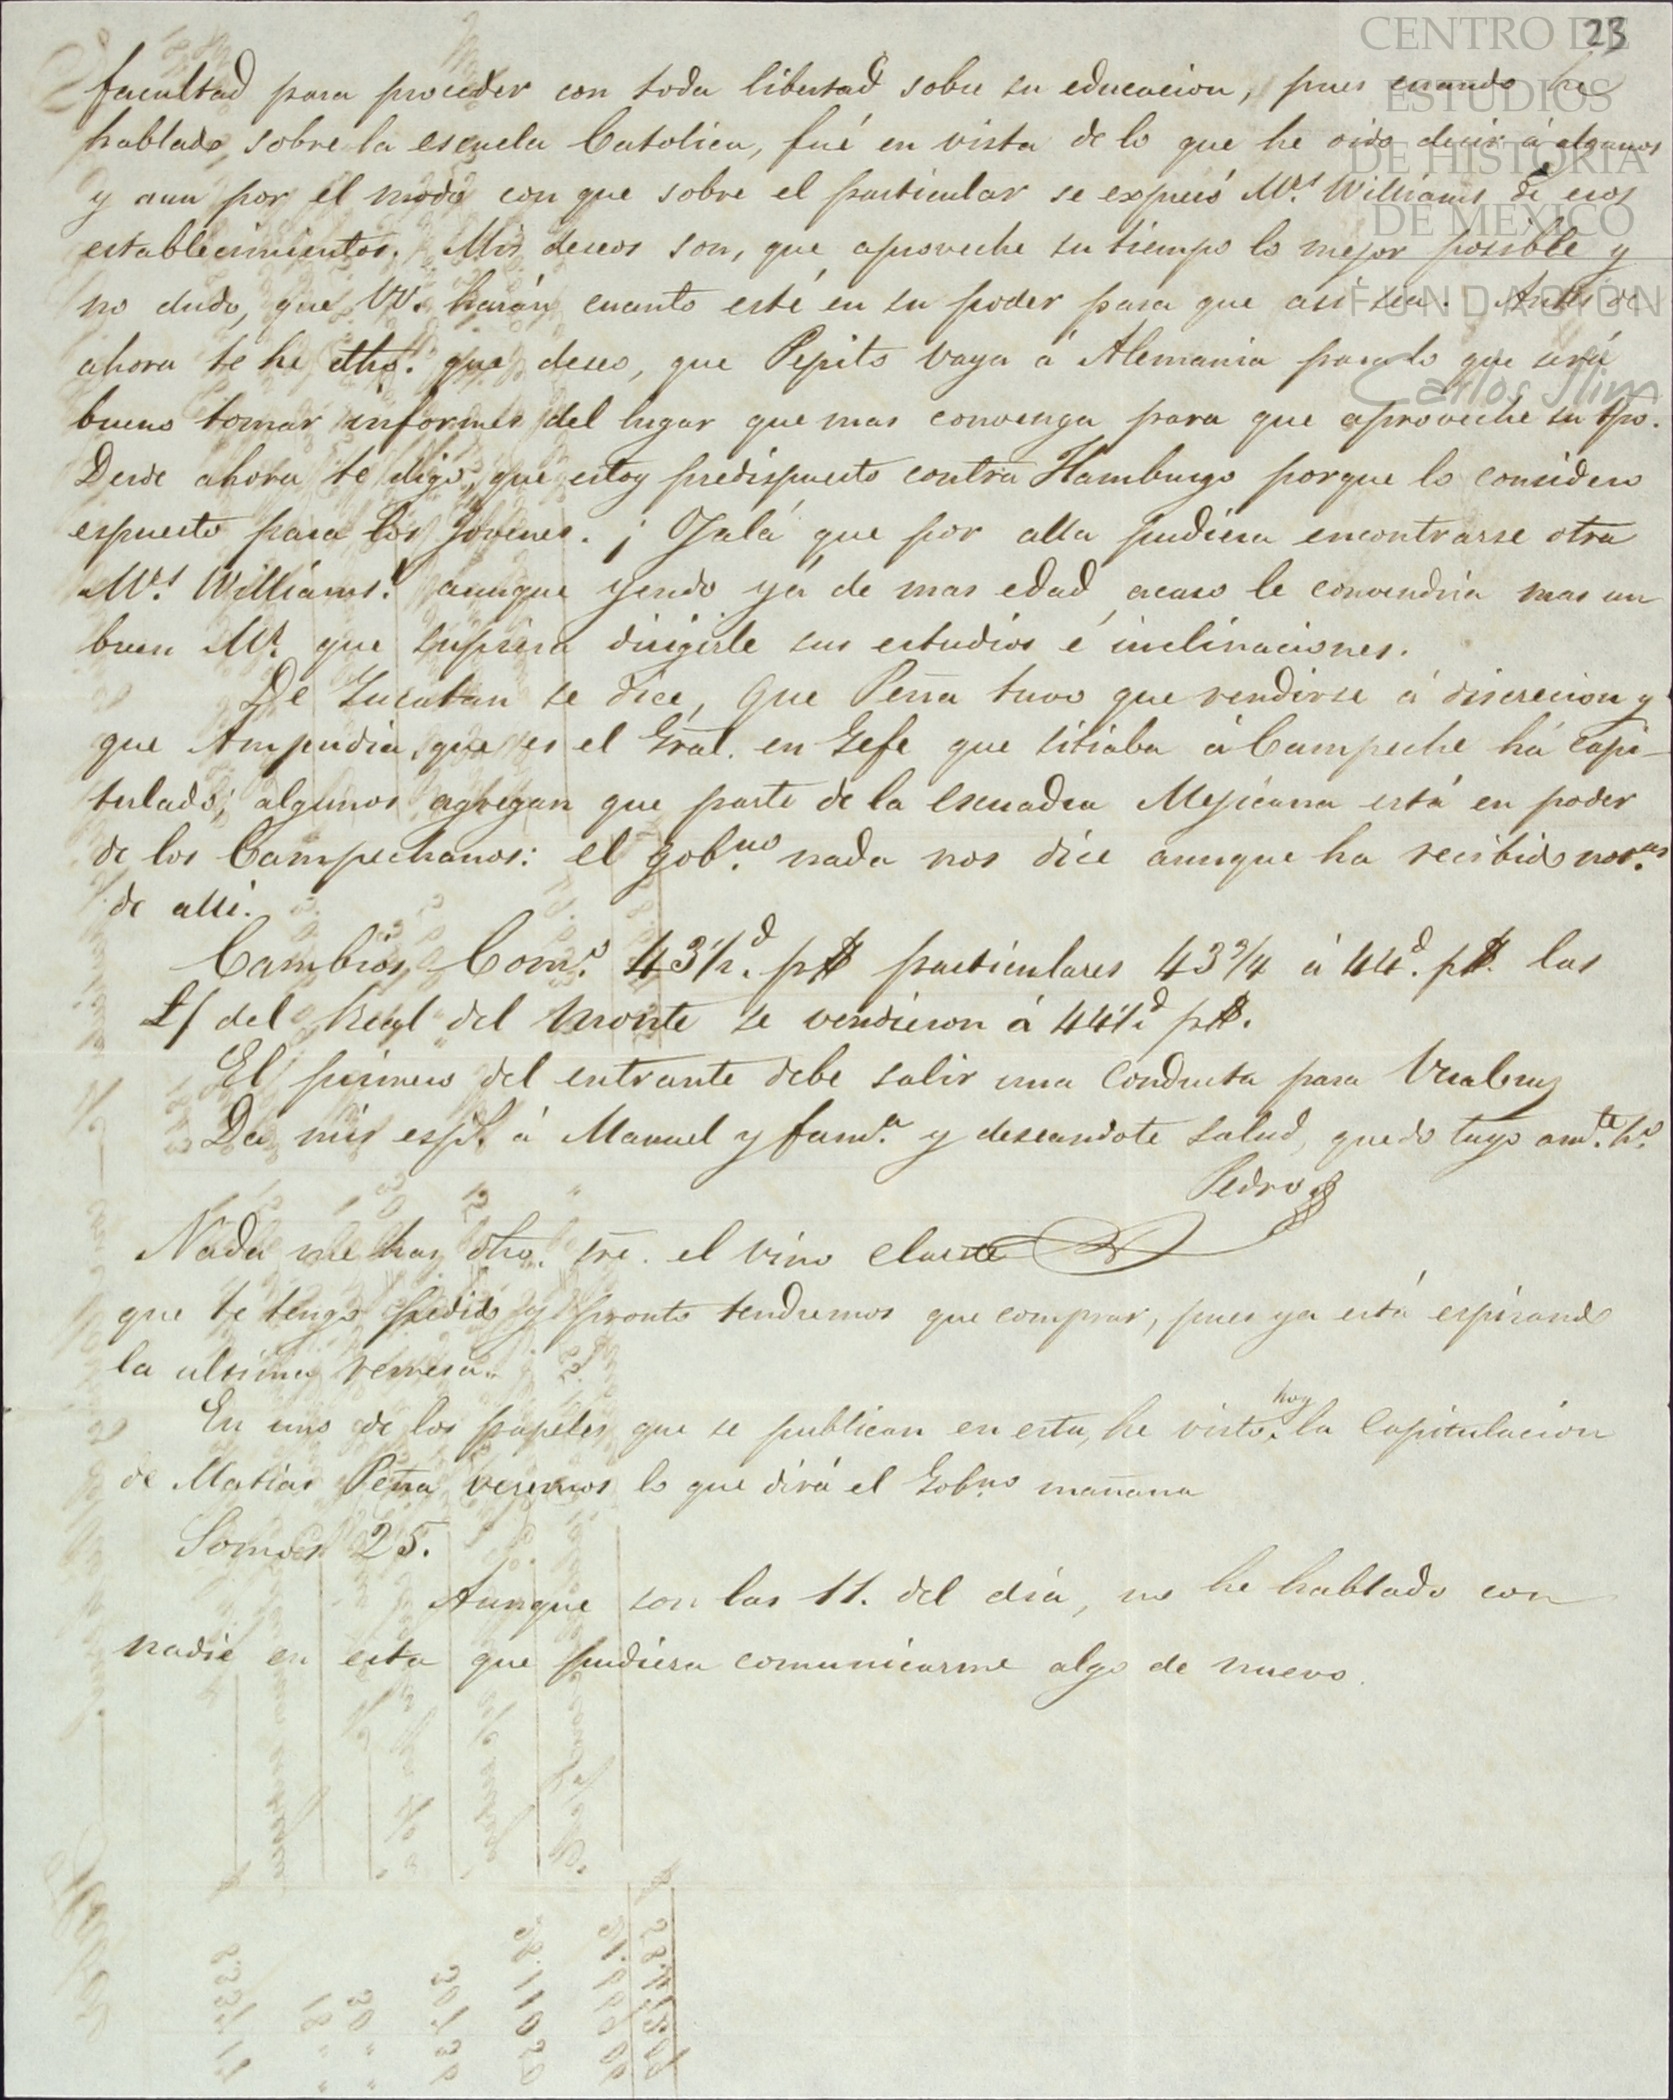 23
CENTRO DE
ESTUDIOS
DE HISTORIA
DE MÉXICO
FUNDACIÓN
Carlos Slim
facultad para proceder con toda libertad sobre su educacion, pues cuando he
hablado, sobre la escuela Catolica, fué en vista de lo que he oido decir á algunos
y aun por el modo con que sobre el particular se expresó Mrs. Williams de esos
establecimientos. Mis deseos son, que aproveche su tiempo lo mejor posible y
no dudo, que VV. harán cuanto esté en su poder para que asi sea. Antes de
ahora te he dho. que deseo, que Pepito vaya á Alemania para lo que será
bueno tomar informes del lugar que mas convenga para que aproveche su tpo.
Desde ahora te digo, que estoy predispuesto contra Hamburgo porque lo considero
espuesto para los Jovenes. ¡Ojalá que por alla pudiera encontrarse otra
Mrs. Williams! aunque yendo yá de mas edad acaso le convendria mas un
buen Mr. que supiera dirigirle sus estudios é inclinaciones.
De Yucatan se dice, que Peña tuvo que rendirse á discrecion y
que Ampudia, que es el Gral. en Gefe que sitiaba á Campeche há capi-
tulado; algunos agregan que parte de la Escuadra Mejicana está en poder
de los Campechanos: el gobno. nada nos dice aunque ha recibido
de alli.
Cambios Como. 43 1/2d. p$ particulares 43 3/4 á 44d. p$. las
£/ del Real del Monte se vendieron á p$.
El primero del entrante debe salir una Conducta para Veracruz
Da mis esps. á Manuel y fama. y deseandote salud, quedo tuyo amte. ho.
Pedro
Nada me has dho. sre. el vino Clarete
que te tengo pedido y pronto tendremos que comprar, pues ya está espirando
la ultima remesa.
En uno de los papeles que se publican en esta, he visto hoy la Capitulacion
de Matias Peña veremos lo que dirá el Gobno. mañana
Somos 25.
Aunque son las 11. del dia, no he hablado con
nadie en esta que pudiera comunicarme algo de nuevo.